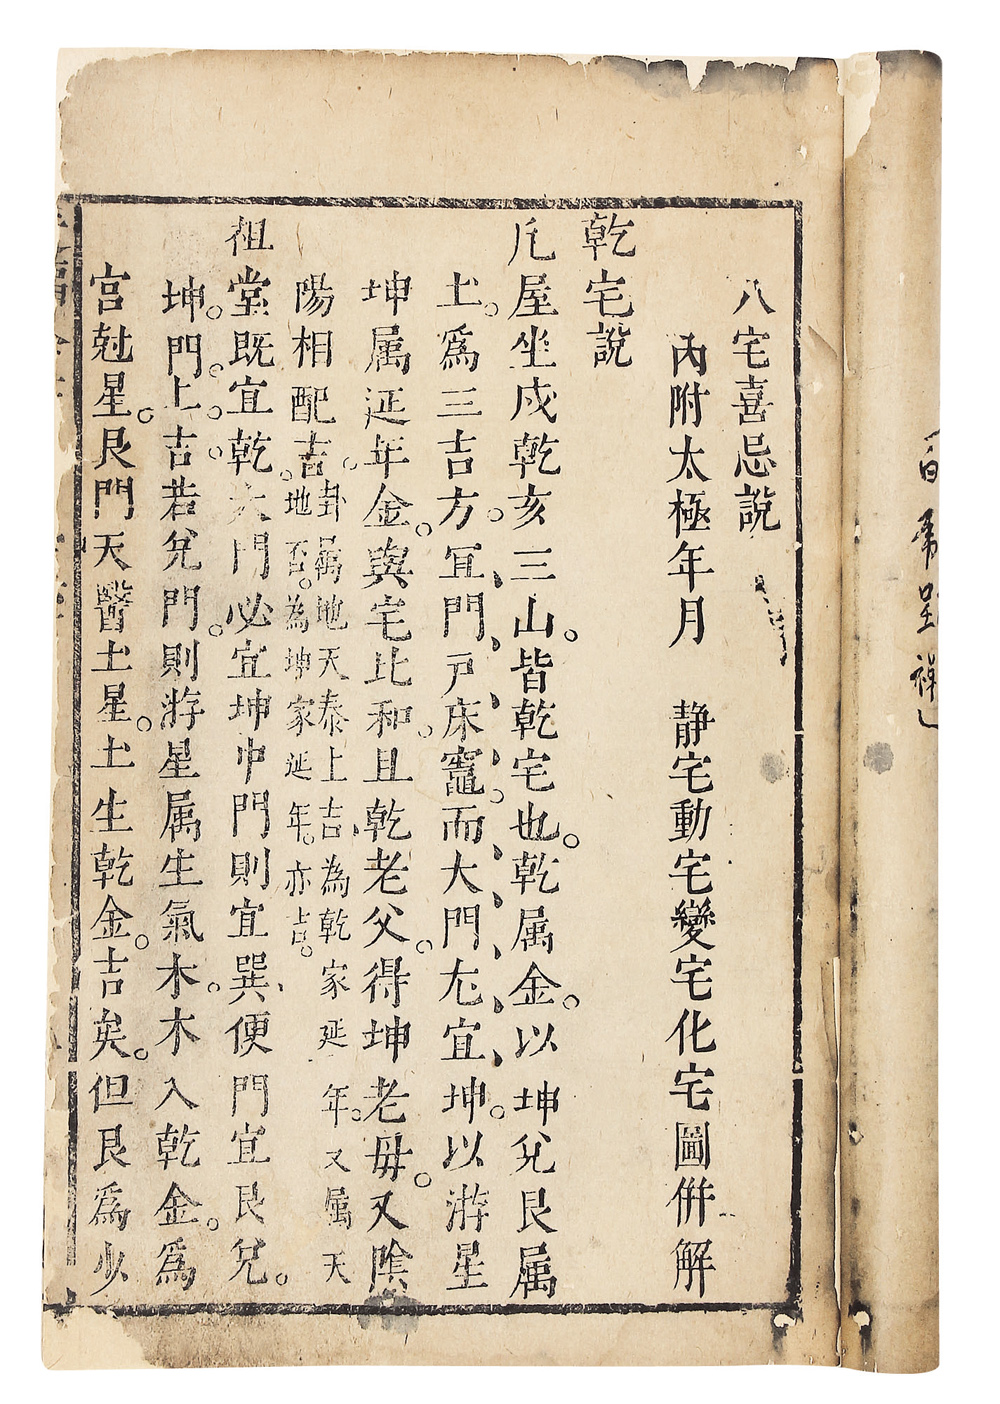 八宅喜忌說
內附太極年月　静宅動宅變宅化宅圖併解
乾宅說
凡屋坐戍乾亥三山。皆乾宅也。乾属金。以坤兌艮属
土。爲三吉方。宜門、戶、床、竈、而大門、尤宜坤。以游星
坤属延年金。與宅比和。且乾老父。得坤老毋。又陰
陽相配。吉。
卦属地天泰上吉為乾家延年。又属天
地否。為坤家延年。亦吉。
祖堂既宜乾大門必宜坤中門則宜巽、便門宜艮兌。
坤。門。上。吉。若兌門。則游星属生氣木。木入乾金。爲
宫尅星。艮門天醫土星。土生乾金。吉矣。但艮爲少